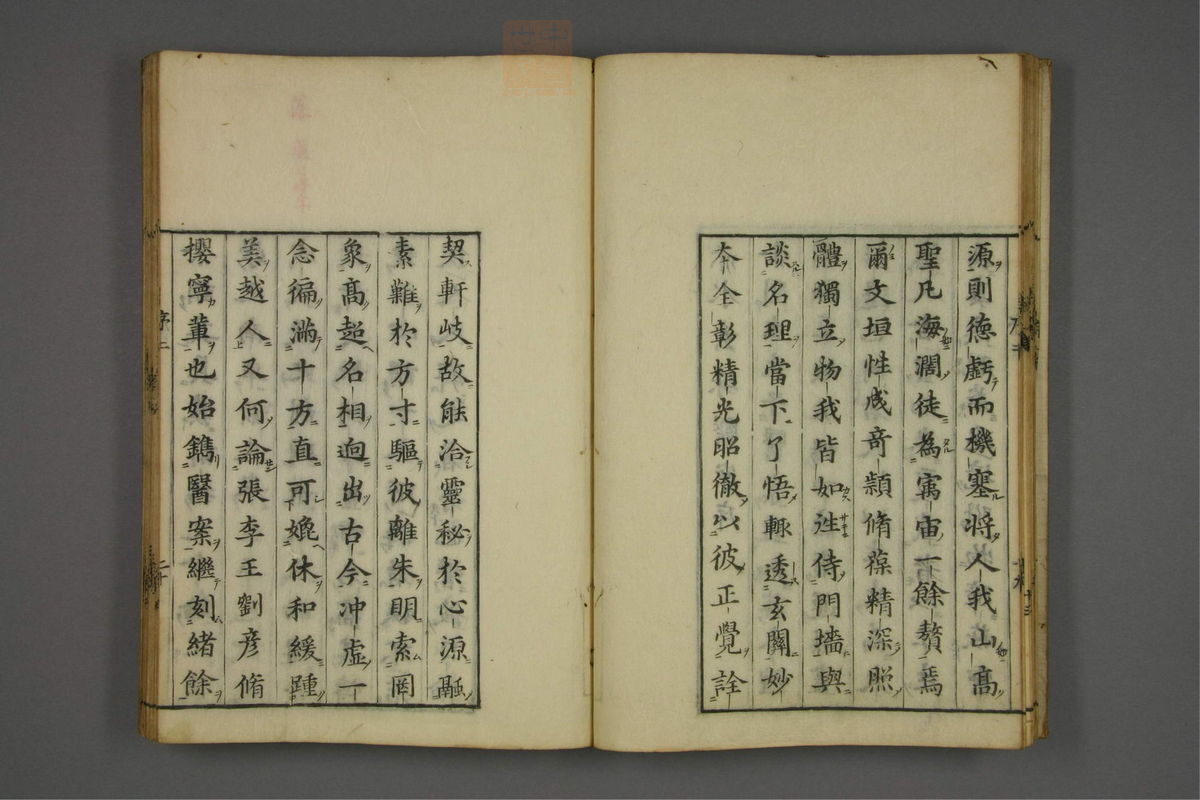 源則德虧而機塞将人我山髙
聖凡海濶徒為寓宙一餘贅焉
爾文垣性成竒頴脩葆精深照
體獨立物我皆如迬侍門墻與
談名理當下了悟輙透玄關妙
夲全彰精光昭徹以彼正覺詮
契軒岐故能洽靈秘於心源融
素難於方寸驅彼離朱明索罔
象髙超名相迥出古今冲虚一
念徧滿十方直可媲休和緩踵
美越人又何論張李王劉彦脩
攖寧軰也始鐫醫案繼刻緒餘
序二